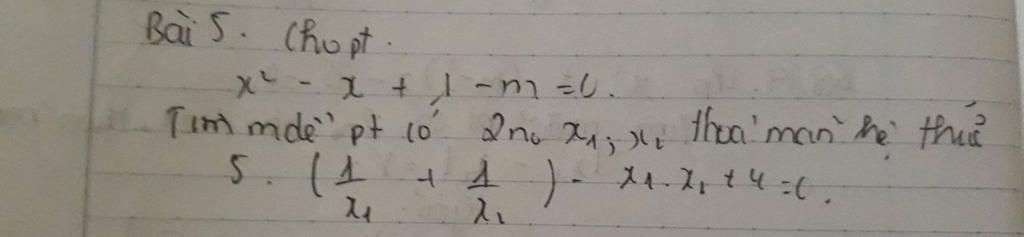 Bài 5. Cho pt.
x² - x + 1 - m = 0.
Tìm m để pt có 2 n₀ x₁; x₂ thoả mãn hệ thức
5. (1/x₁ + 1/x₂) - x₁.x₂ + 4 = 0.